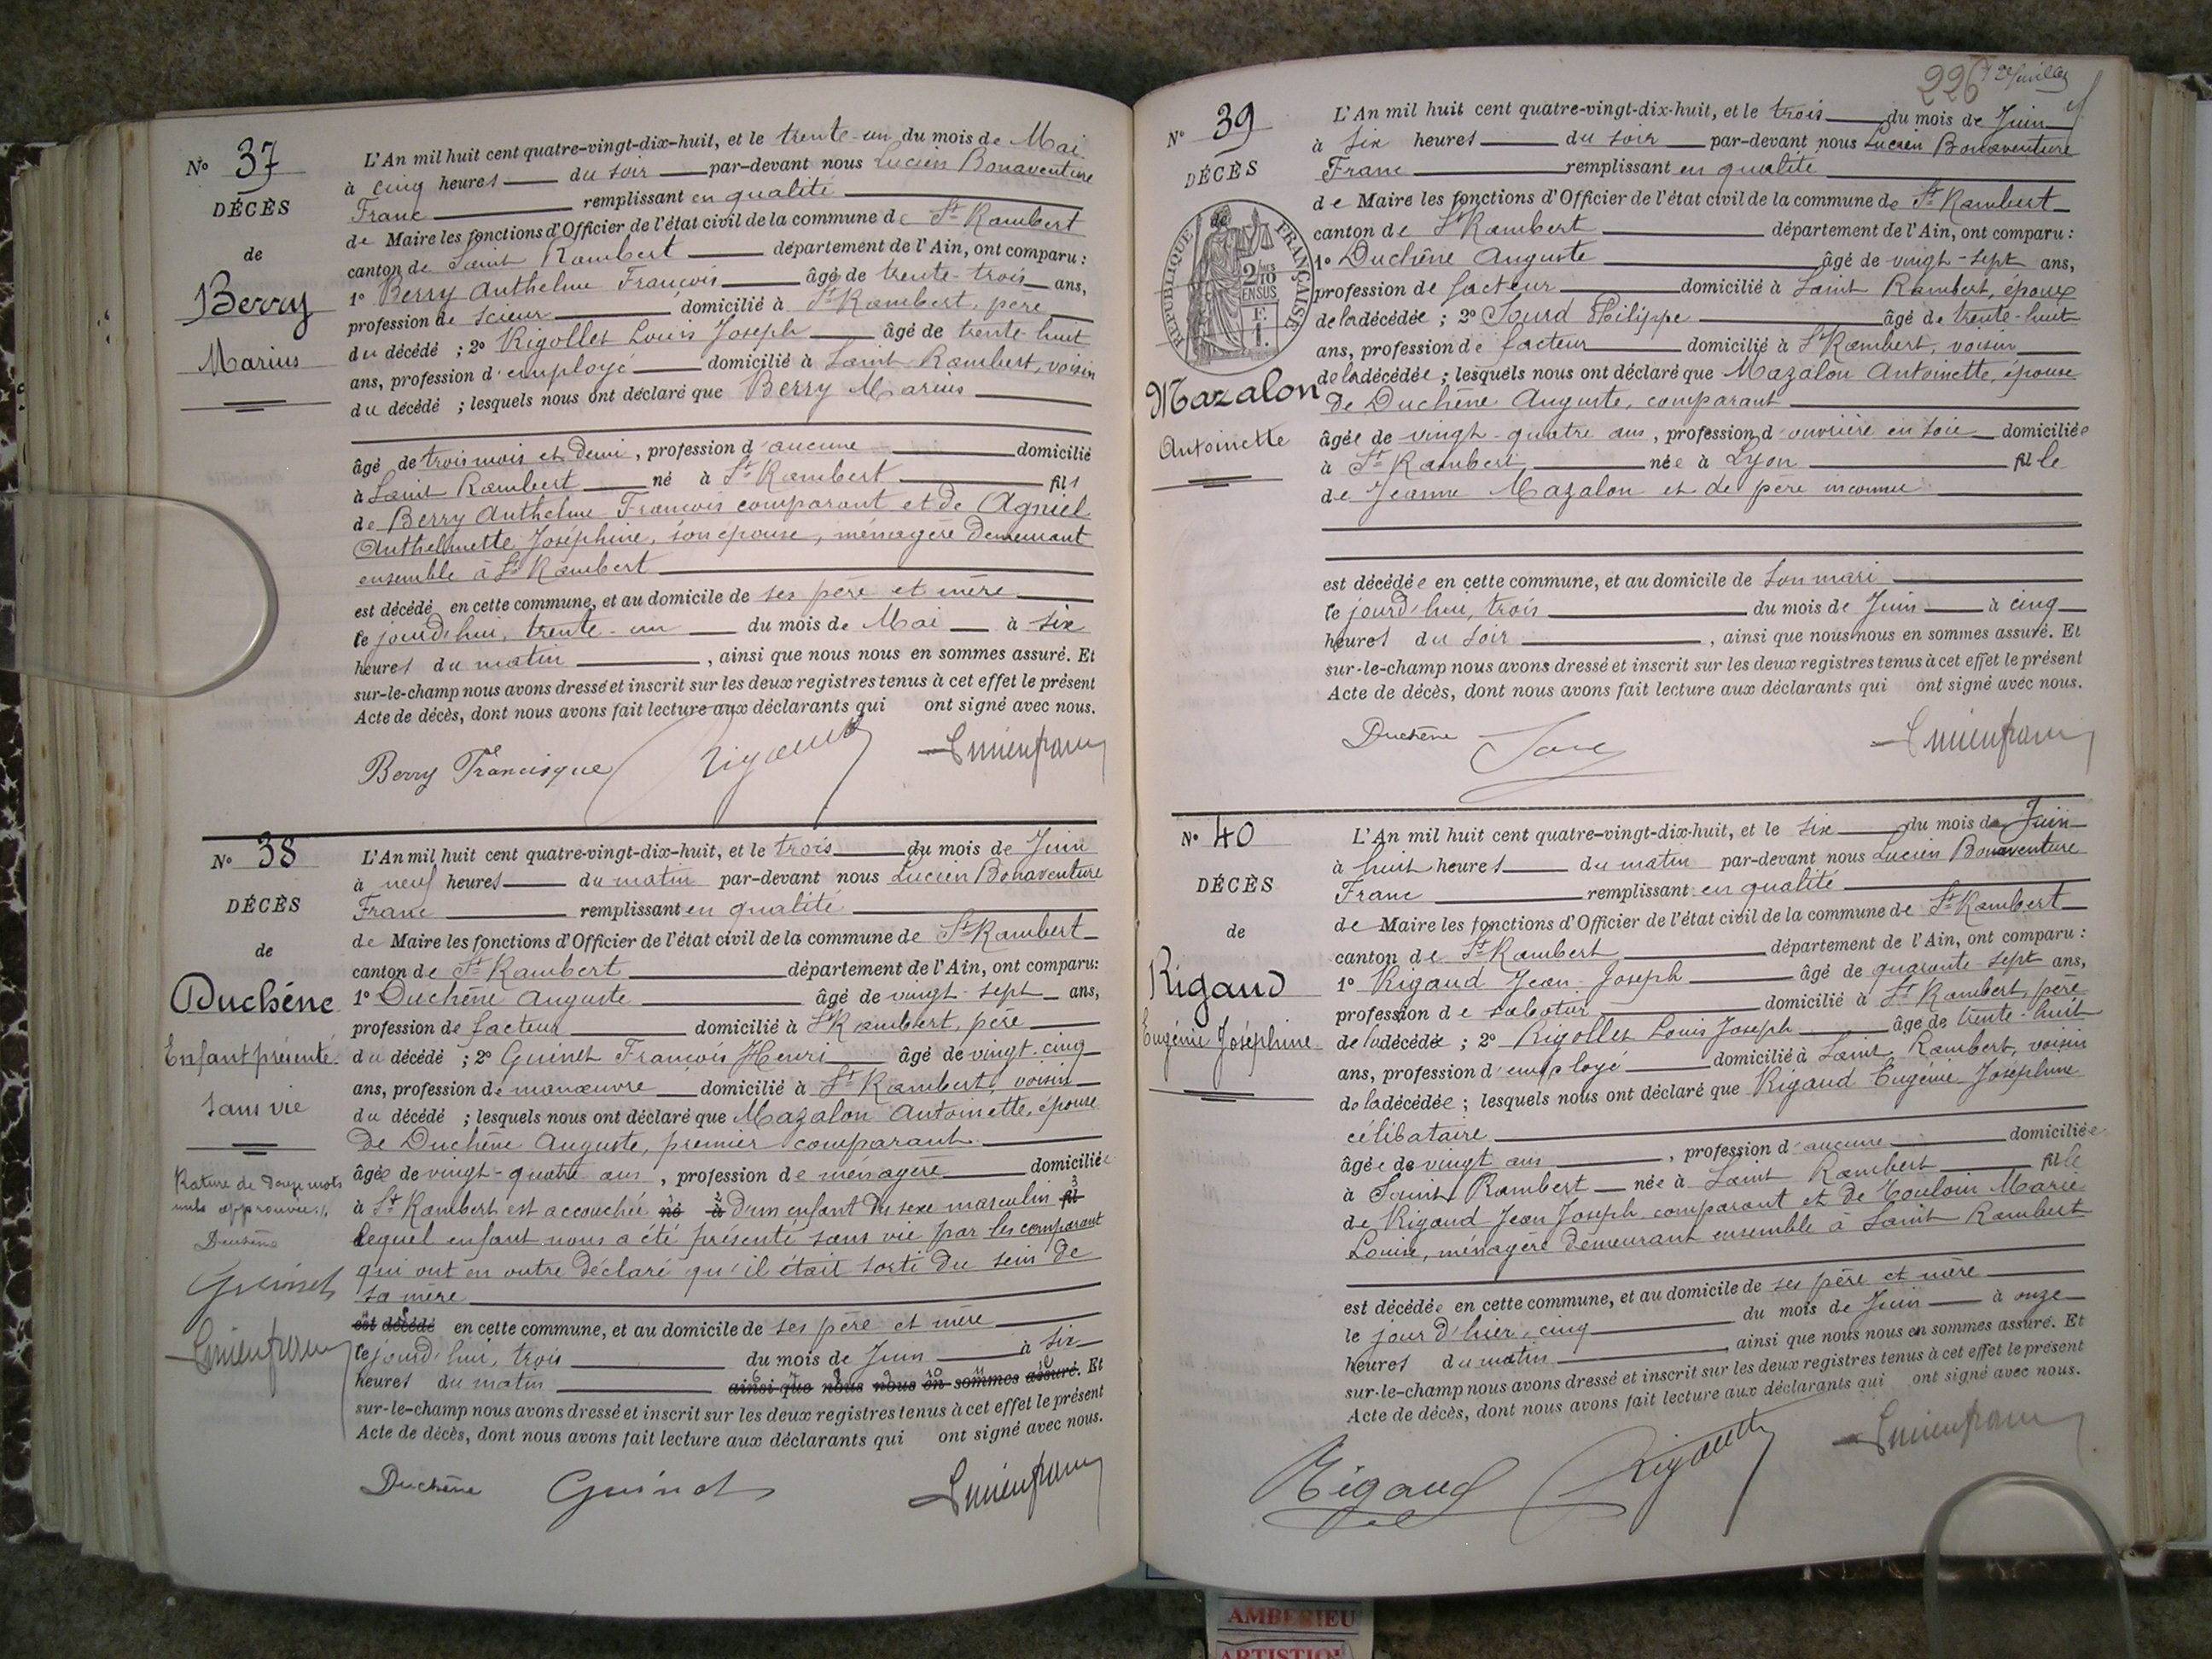 N° 37
DÉCÈS
de
Berry
Marius
L'An mil huit cent quatre-vingt-dix-huit, et le trente-un du mois de Mai
à cinq heures du soir par-devant nous Lucien Bonaventure
Franc remplissant en qualité
de Maire les fonctions d'Officier de l'état civil de la commune de St Rambert
canton de Saint Rambert département de l'Ain, ont comparu :
1° Berry Anthelme François âgé de trente-trois ans,
profession de scieur domicilié à St Rambert, père
du décédé ; 2° Rigollet Louis Joseph âgé de trente-huit
ans, profession d'employé domicilié à Saint-Rambert, voisin
du décédé ; lesquels nous ont déclaré que Berry Marius
âgé de trois mois et demi, profession d'aucune domicilié
à Saint Rambert né à St Rambert fils
de Berry Anthelme François comparant et de Agniel
Anthelmette Joséphine, son épouse, ménagère demeurant
ensemble à St Rambert
est décédé en cette commune, et au domicile de ses père et mère
le jourd'hui, trente-un du mois de Mai à six
heures du matin, ainsi que nous nous en sommes assuré. Et
sur-le-champ nous avons dressé et inscrit sur les deux registres tenus à cet effet le présent
Acte de décès, dont nous avons fait lecture aux déclarants qui ont signé avec nous.
Berry Francisque
N° 38
DÉCÈS
de
Duchêne
Enfant présenté
sans vie
Rature de douze mots
nuls approuvée
Duchêne
Guinet
Lucien franc
L'An mil huit cent quatre-vingt-dix-huit, et le trois du mois de Juin
à neuf heures du matin par-devant nous Lucien Bonaventure
Franc remplissant en qualité
de Maire les fonctions d'Officier de l'état civil de la commune de St Rambert
canton de St Rambert département de l'Ain, ont comparu:
1° Duchêne Auguste âgé de vingt-sept ans,
profession de facteur domicilié à St Rambert, père
du décédé ; 2° Guinet François Henri âgé de vingt-cinq
ans, profession de manœuvre domicilié à St Rambert, voisin
du décédé ; lesquels nous ont déclaré que Mazalon Antoinette, épouse
de Duchêne Auguste, premier comparant
âgée de vingt-quatre ans, profession de ménagère domiciliée
à St Rambert est accouchée né à d'un enfant du sexe masculin fil
lequel enfant nous a été présenté sans vie par les comparant
qui ont en outre déclaré qu'il était sorti du sein de
sa mère
est décédé en cette commune, et au domicile de ses père et mère
le jourd'hui, trois du mois de Juin à six
heures du matin ainsi que nous nous en sommes assuré. Et
sur-le-champ nous avons dressé et inscrit sur les deux registres tenus à cet effet le présent
Acte de décès, dont nous avons fait lecture aux déclarants qui ont signé avec nous.
Duchêne Guinet Lucien franc
226
N° 39
DÉCÈS
de
RÉPUBLIQUE FRANÇAISE
2/10
EN SUS
Mazalon
Antoinette
L'An mil huit cent quatre-vingt-dix-huit, et le trois du mois de Juin
à six heures du soir par-devant nous Lucien Bonaventure
Franc remplissant en qualité
de Maire les fonctions d'Officier de l'état civil de la commune de St Rambert
canton de St Rambert département de l'Ain, ont comparu :
1° Duchêne Auguste âgé de vingt-sept ans,
profession de facteur domicilié à Saint Rambert, époux
de la décédée ; 2° Sourd Philippe âgé de trente-huit
ans, profession de facteur domicilié à St Rambert, voisin
de la décédée ; lesquels nous ont déclaré que Mazalon Antoinette, épouse
de Duchêne Auguste, comparant
âgée de vingt-quatre ans, profession d'ouvrière en soie domiciliée
à St Rambert née à Lyon fille
de Jeanne Mazalon et de père inconnu
est décédée en cette commune, et au domicile de son mari
le jourd'hui, trois du mois de Juin à cinq
heures du soir, ainsi que nous nous en sommes assuré. Et
sur-le-champ nous avons dressé et inscrit sur les deux registres tenus à cet effet le présent
Acte de décès, dont nous avons fait lecture aux déclarants qui ont signé avec nous.
Duchêne Lucien franc
N° 40
DÉCÈS
de
Rigaud
Eugénie Joséphine
L'An mil huit cent quatre-vingt-dix-huit, et le six du mois de Juin
à huit heures du matin par-devant nous Lucien Bonaventure
Franc remplissant en qualité
de Maire les fonctions d'Officier de l'état civil de la commune de St Rambert
canton de St Rambert département de l'Ain, ont comparu :
1° Rigaud Jean Joseph âgé de quarante-sept ans,
profession de sabotier domicilié à St Rambert, père
de la décédée ; 2° Rigollet Louis Joseph âgé de trente-huit
ans, profession d'employé domicilié à Saint Rambert, voisin
de la décédée ; lesquels nous ont déclaré que Rigaud Eugénie Joséphine
célibataire
âgée de vingt ans, profession d'aucune domiciliée
à Saint Rambert née à Saint Rambert fille
de Rigaud Jean Joseph comparant et de Marie
Louise, ménagère demeurant ensemble à Saint Rambert
est décédée en cette commune, et au domicile de ses père et mère
le jour d'hier, cinq du mois de Juin à onze
heures du matin, ainsi que nous nous en sommes assuré. Et
sur-le-champ nous avons dressé et inscrit sur les deux registres tenus à cet effet le présent
Acte de décès, dont nous avons fait lecture aux déclarants qui ont signé avec nous.
Rigaud Lucien franc
AMBERIEU